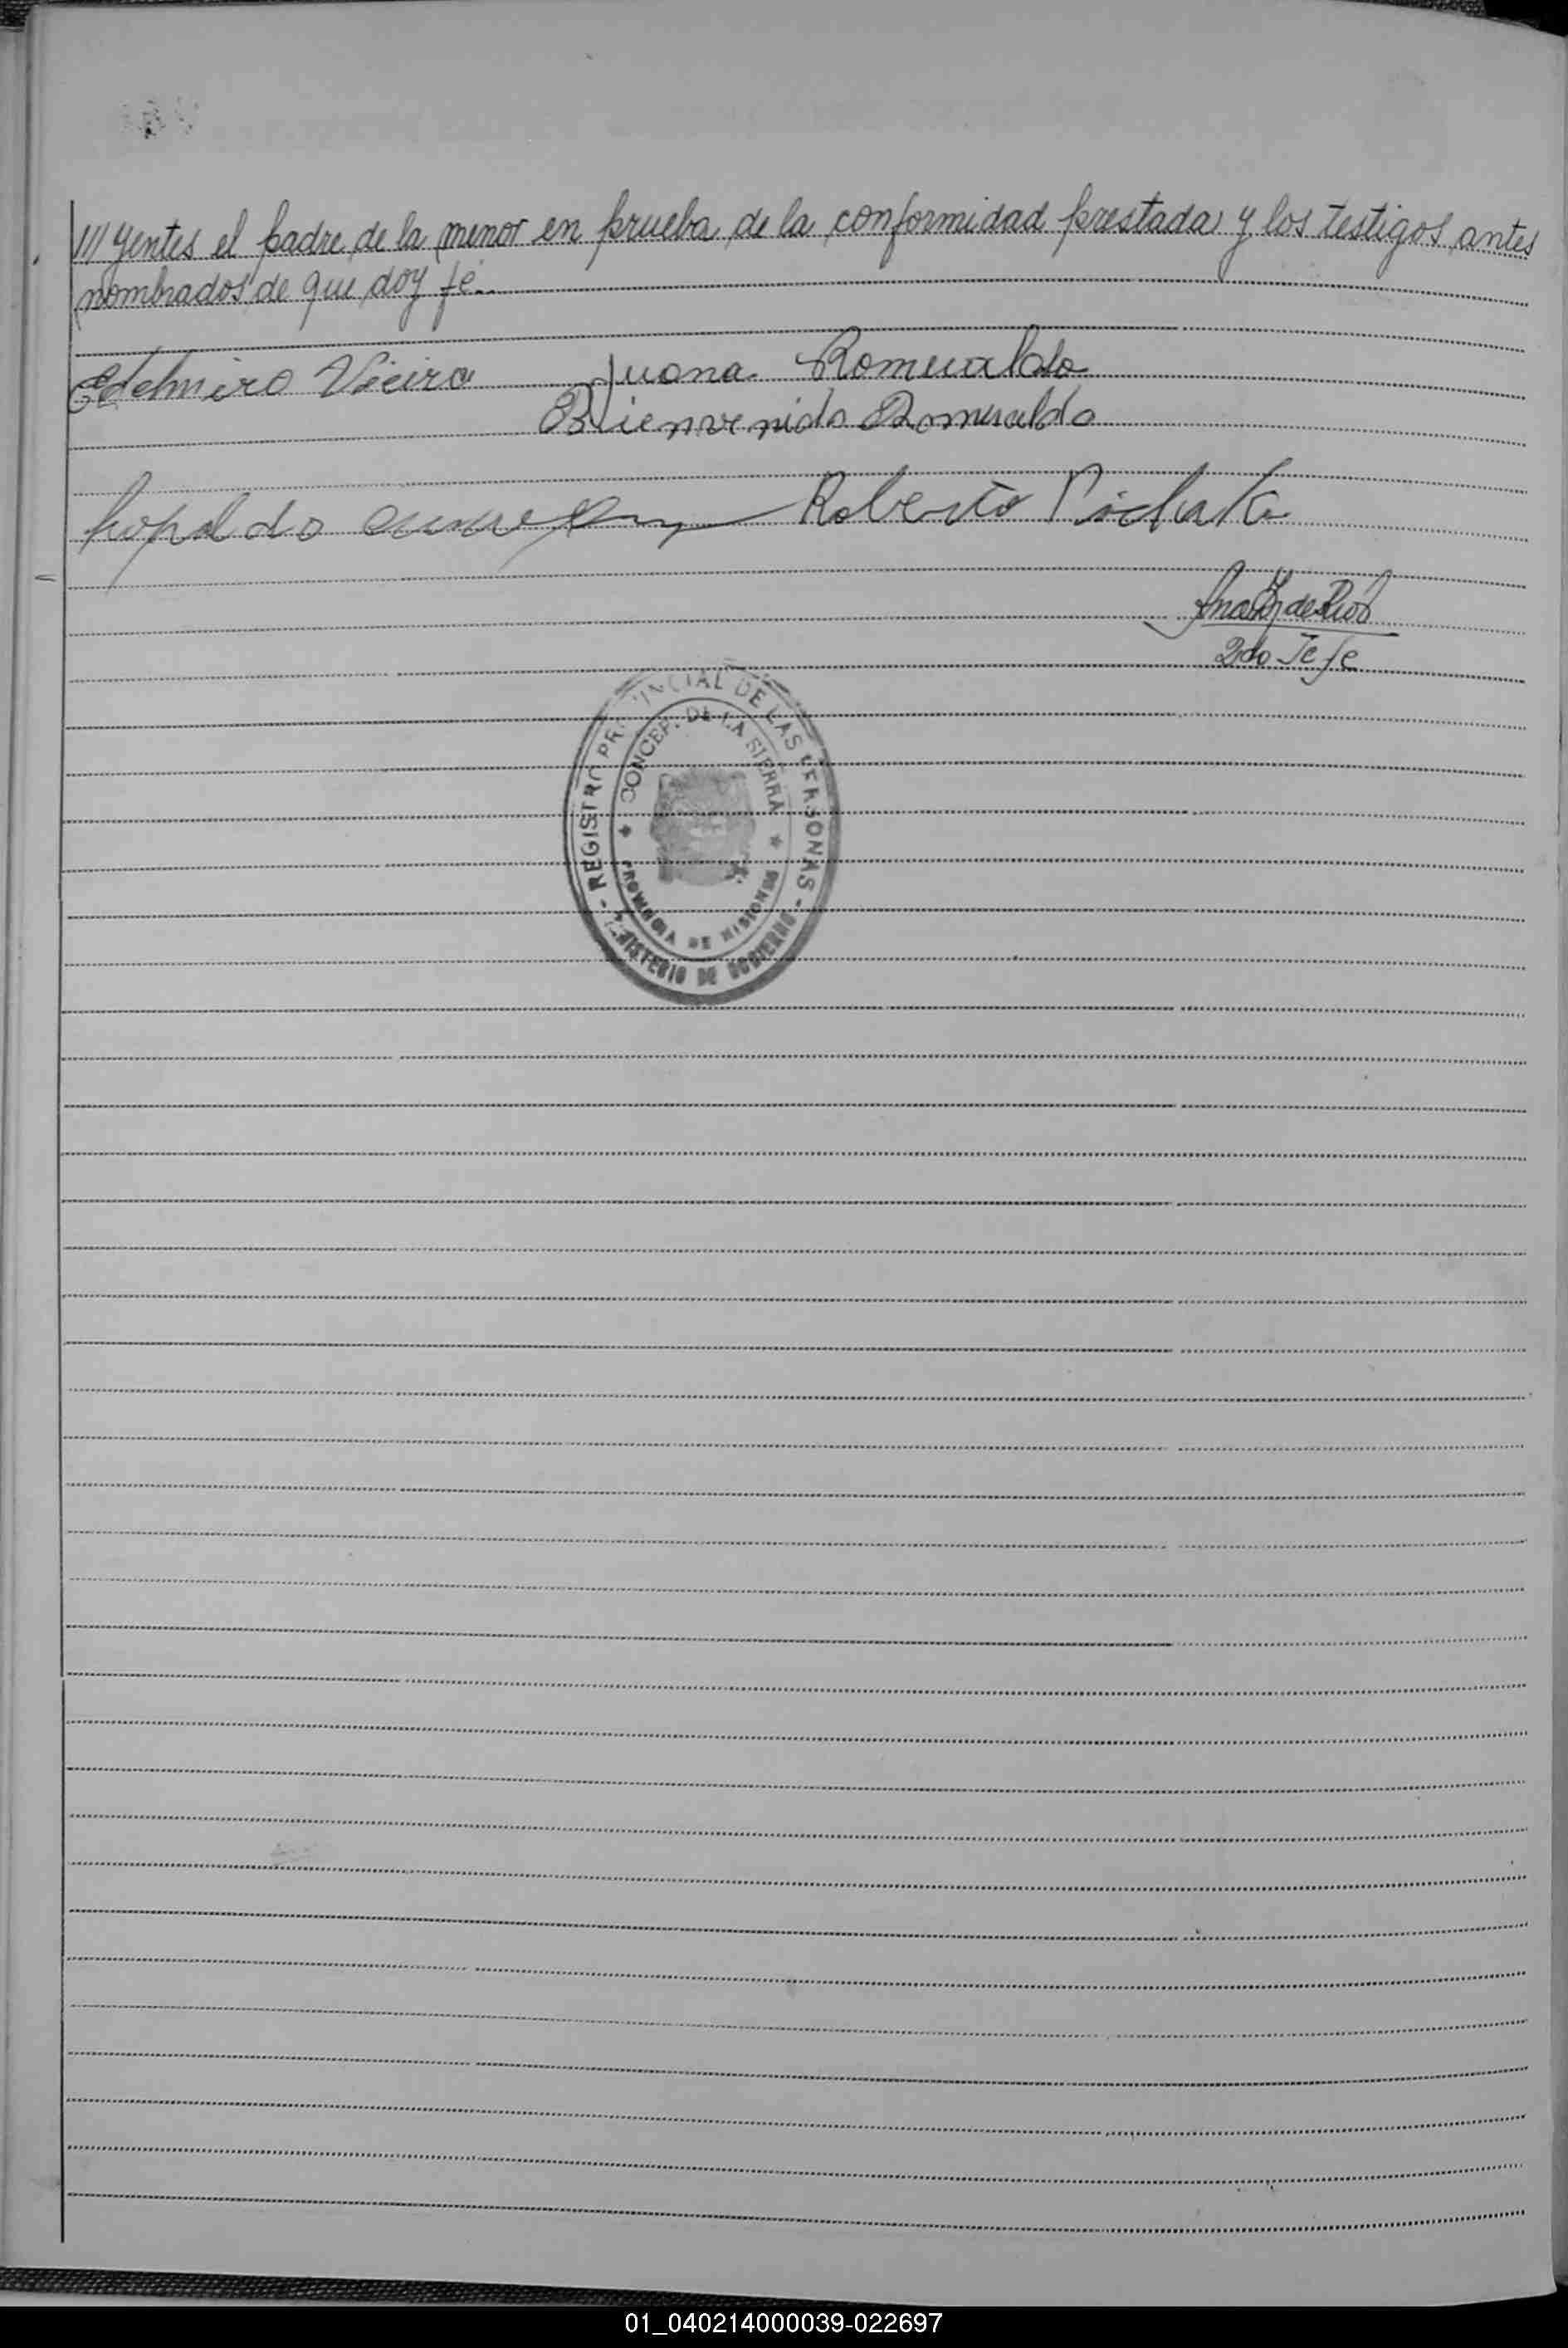 /// yentes el padre de la menor en prueba de la conformidad prestada y los testigos antes
nombrados de que doy fé..
Edelmiro Vieira
Juana Romualdo
Bienvenido Romualdo
Roberto
2do Jefe
- REGISTRO PROVINCIAL DE LAS PERSONAS -
MINISTERIO DE GOBIERNO
CONCEP. DE LA SIERRA
PROVINCIA DE MISIONES
01_040214000039-022697